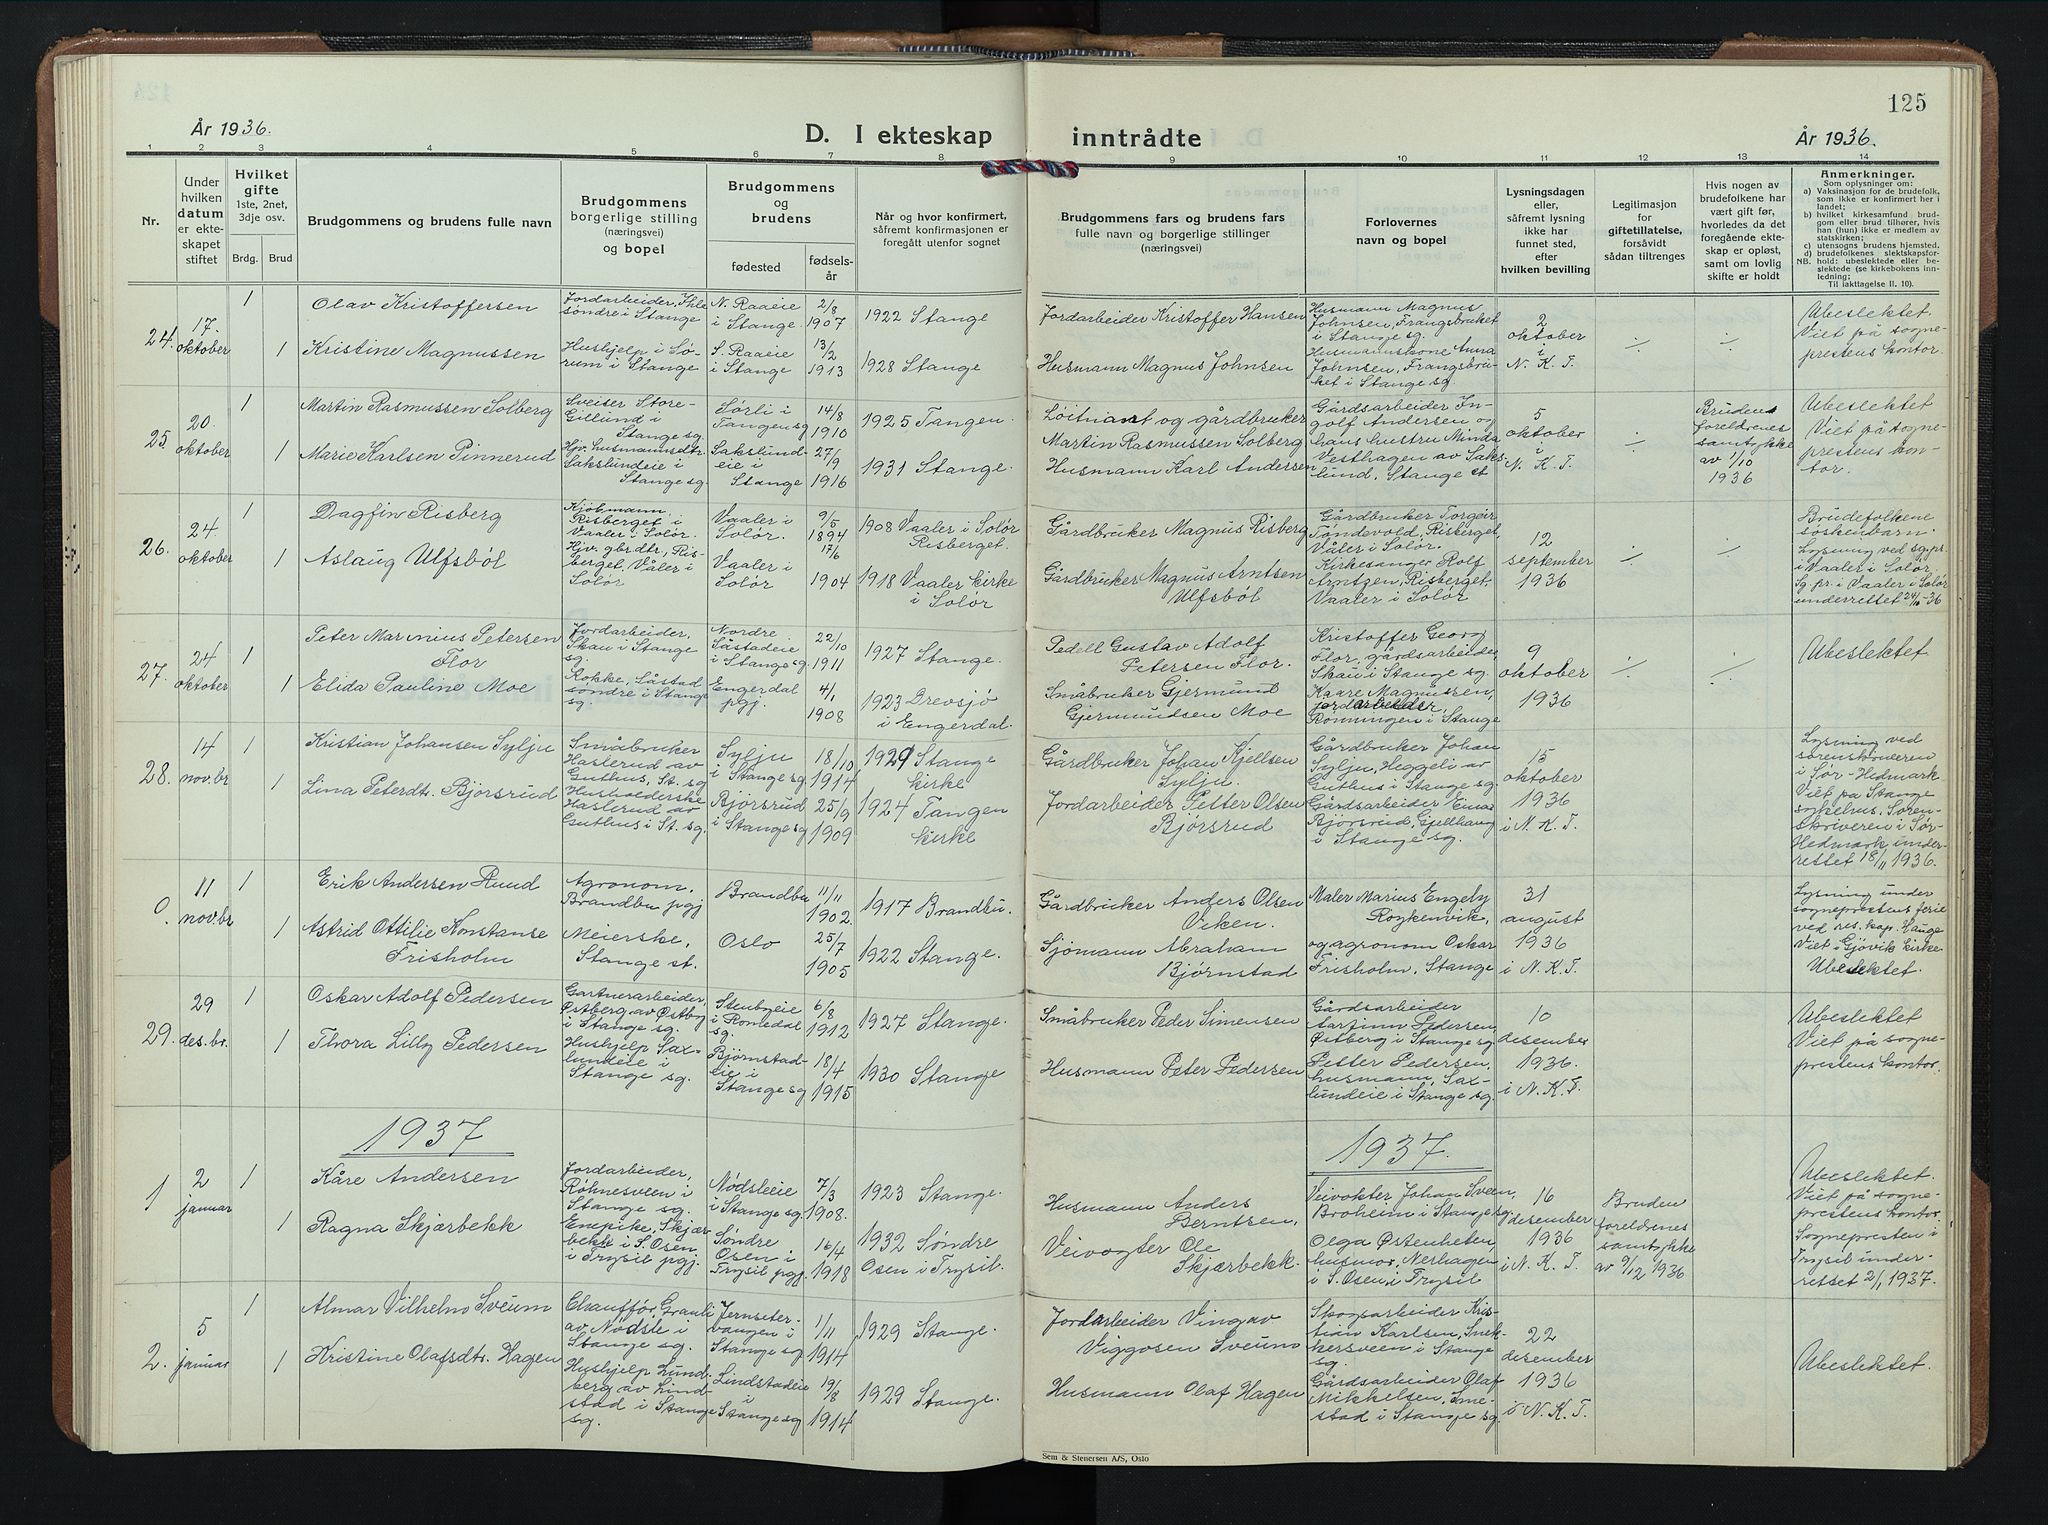 125
År 1936.
D. I ekteskap inntrådte
År 1936.
1 2 3 4 5 6 7 8 9 10 11 12 13 14
Nr.
Under
hvilken
datum
er ekte-
skapet
stiftet
Hvilket
gifte
1ste, 2net,
3dje osv.
Brdg. Brud
Brudgommens og brudens fulle navn
Brudgommens
borgerlige stilling
(næringsvei)
og bopel
Brudgommens
og
brudens
fødested
fødsels-
år
Når og hvor konfirmert,
såfremt konfirmasjonen er
foregått utenfor sognet
Brudgommens fars og brudens fars
fulle navn og borgerlige stillinger
(næringsvei)
Forlovernes
navn og bopel
Lysningsdagen
eller,
såfremt lysning
ikke har
funnet sted,
efter
hvilken bevilling
Legitimasjon
for
giftetillatelse,
forsåvidt
sådan tiltrenges
Hvis nogen av
brudefolkene har
vært gift før,
hvorledes da det
foregående ekte-
skap er opløst,
samt om lovlig
skifte er holdt
Anmerkninger.
Som oplysninger om:
a) Vaksinasjon for de brudefolk,
som ikke er konfirmert her i
landet;
b) hvilket kirkesamfund brud-
gom eller brud tilhører, hvis
han (hun) ikke er medlem av
statskirken;
c) utensogns brudens hjemsted.
d) brudefolkenes slektskapsfor-
NB. hold: ubeslektede eller be-
slektede (se kirkebokens inn-
ledning;
Til iakttagelse II. 10).
24.
17.
oktober
1
1
Olav Kristoffersen
Kristine Magnussen
Jordarbeider, Ihle
søndre i Stange
Hushjelp i Sø-
rum i Stange
N. Raaeie
i Stange
S. Raaeie
i Stange
2/8
1907
13/2
1913
1922 Stange
1928 Stange
Jordarbeider Kristoffer Hansen
Husmann Magnus Johnsen
Husmann Magnus
Johnsen, Frangsbruket
i Stange sg.
Husmannskone Anna
Johnsen, Frangsbru-
ket i Stange sg.
2
oktober
i
N. K. T.
÷
÷
Ubeslektet.
Viet på sogne-
prestens kontor.
25.
20.
oktober
1
1
Martin Rasmussen Solberg
Marie Karlsen Pinnerud
Sveiser Store-
Gillund i
Stange sg.
Hjv. husmannsdtr.
Sakslundeie i
Stange sg.
Sørli i
Tangen sg
Sakslund-
eie i
Stange
14/8
1910
27/9
1916
1925 Tangen.
1931 Stange.
Løitnant og gårdbruker
Martin Rasmussen Solberg
Husmann Karl Andersen
Gårdsarbeider In-
golf Andersen og
hans hustru Minda
Vesthagen av Saks-
lund, Stange st
5
oktober
N. K. T.
÷
Brudens
foreldrenes
samtykke
av 1/10
1936
Ubeslektet
Viet på sogne-
prestens kon-
tor.
26.
24
oktober
1
1
Dagfin Risberg
Aslaug Ulfsbøl
Kjøbmann,
Risberget i
Vaaler i Solør.
Hjv. gbr.dtr., Ris-
berget, Våler i
Solør
Vaaler i
Solør.
Vaaler i
Solør
9/5
1894
17/6
1904
1908 Vaaler i Solør
Risberget.
1918 Vaaler kirke
i Solør
Gårdbruker Magnus Risberg
Gårdbruker Magnus Arntsen
Ulfsbøl
Gårdbruker Torgeir
Tøndevold, Risberget,
Våler i Solør.
Kirkesanger Rolf
Arntzen, Risberget,
Vaaler i Solør.
12
september
1936
÷
÷
Brudefolkene
søskenbarn
Lysning ved sg. pr.
i Vaaler i Solør.
Sg. pr. i Vaaler i Solør
underrettet 24/10 -36
27.
24
oktober
1
1
Peter Marinius Petersen
Flor
Elida Pauline Moe
Jordarbeider,
Skau i Stange
sg.
Kokke, Såstad
søndre i Stange
sg.
Nordre
Såstadeie
i Stange sg
Engerdal
pgj.
22/10
1911
4/1
1908
1927 Stange.
1923 Drevsjø
i Engerdal.
Pedell Gustav Adolf
Petersen Flor.
Småbruker Gjermund
Gjermundsen Moe
Kristoffer Georg
Flor, gårdsarbeider,
Skau i Stange sg.
Kaare Magnussen,
jordarbeider,
Rønningen i Stange
9
oktober
1936
÷
÷
Ubeslektet
28.
14
nov.br
1
1
Kristian Johansen Sylju
Lina Petersdtr. Bjørsrud
Småbruker
Haslerud av
Guthus, St. sg
Husholderske
Haslerud av
Guthus i St. sg.
Sylju
i Stange sg
Bjørsrud
i Stange sg
18/10
1914
25/9
1909
1929 Stange
kirke
1924 Tangen
kirke
Gårdbruker Johan Kjellsen
Sylju.
Jordarbeider Petter Olsen
Bjørsrud
Gårdbruker Johan
Sylju, Heggeli av
Guthus i Stange sg.
Gårdsarbeider Einar
Bjørsrud, Gjellhaug
i Stange sg.
15
oktober
1936
i N. K. T.
Lysning ved
sorenskriveren
i Sør-Hedmark
Viet på Stange
sykehus. Soren-
skriveren i Sør-
Hedmark under-
rettet 18/11 1936.
0.
11
nov.br
1
1
Erik Andersen Ruud
Astrid Ottilie Konstanse
Frisholm
Agronom.
Brandbu pgj
Meierske,
Stange st.
Brandbu
Oslo
11/11
1902.
25/7
1905
1917 Brandbu.
1922 Stange.
Gårdbruker Anders Olsen
Viken.
Sjømann Abraham
Bjørnstad
Maler Marius Engeby
Røykenvik,
og agronom Oskar
Frisholm, Stange
31
august
1936
i N. K. T.
Lysning under
sogneprestens ferie
ved res. kap. Hauge
Viet i Gjøvik kirke.
Ubeslektet.
29.
29
des.br.
1
1
Oskar Adolf Pedersen
Thora Lilly Pedersen
Gartnerarbeider,
Østberg av Østby
i Stange sg.
Hushjelp Sax-
lundeie i
Stange sg.
Stenbyeie
i Romedal
sg.
Bjørnstad-
eie i
Stange sg
6/8
1912
18/4
1915
1927 Stange.
1930 Stange
Småbruker Peder Simensen
Husmann Peter Pedersen
Gårdsarbeider
Aartinn Pedersen,
Østberg i Stange sg
Petter Pedersen,
husmann, Sax-
lundeie i Stange sg.
10
desember
1936.
i N. K. T.
Ubeslektet
Viet på sogne-
prestens kontor.
1937
1937.
1
2
januar
1
1
Kåre Andersen
Ragna Skjærbekk
Jordarbeider,
Røhnesveen i
Stange sg.
Enepike, Skjær-
bekk i S. Osen,
i Trysil pgj.
Nødsleie
i Stange sg.
Søndre
Osen i
Trysil pgj.
7/3
1908.
16/4
1918
1923 Stange.
1932 Søndre
Osen i Trysil.
Husmann Anders
Berntsen.
Veivogter Ole
Skjærbekk.
Veivokter Johan Sveen,
Broheim i Stange sg.
Olga Østenheten,
husmor, Nerhagen
i S. Osen, i Trysil
16
desember
1936
i N. K. T.
Bruden
foreldrenes
samtykke
av 9/12 1936
Ubeslektet.
Viet på sogne-
prestens kontor.
Sognepresten i
Trysil under-
rettet 2/1 1937.
2.
5
januar
1
1
Almar Vilhelm Sveum
Kristine Olafsdtr. Hagen
Chauffør, Grauli
av Nødsle i
Stange sg.
Hushjelp Lund-
berg av Lind-
stad i Stange
sg.
Jernseter-
vangen i
Stange sg
Lindstadeie
i
Stange sg
1/11
1914
19/8
1914
1929 Stange.
1929 Stange.
Jordarbeider Vingav
Viggosen Sveum
Husmann Olaf Hagen
Skogsarbeider Kris-
tian Karlsen, Snek-
kersveen i Stange
sg.
Gårdsarbeider Olaf
Mikkelsen, Sme-
stad i Stange sg.
22
desember
1936
i N. K. T.
Ubeslektet.
Sem & Stenersen A/S, Oslo